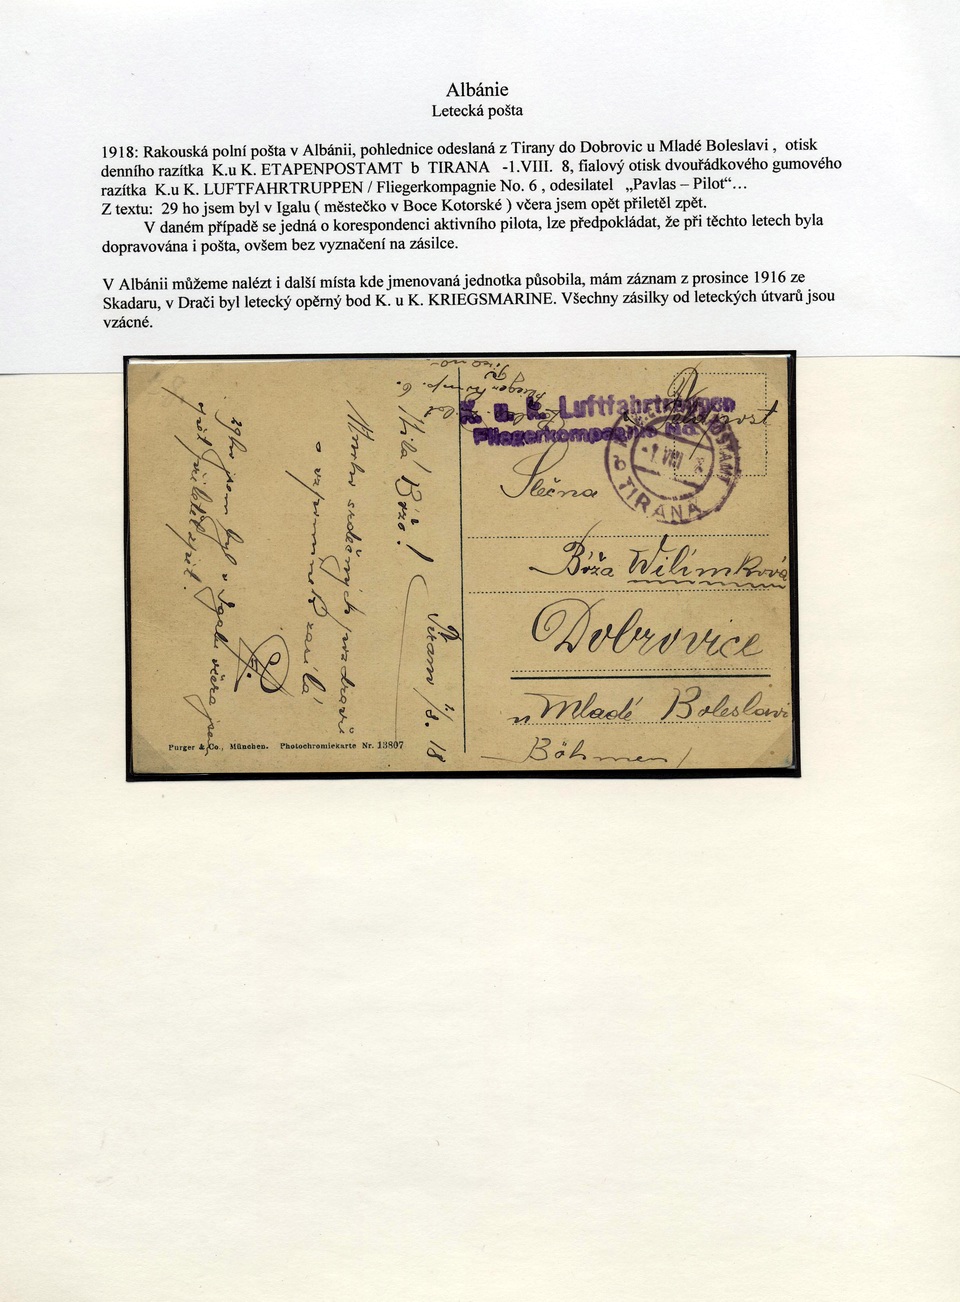 Albánie
Letecká pošta
1918: Rakouská polní pošta v Albánii, pohlednice odeslaná z Tirany do Dobrovic u Mladé Boleslavi, otisk
denního razítka K.u K. ETAPENPOSTAMT b TIRANA -1.VIII. 8, fialový otisk dvouřádkového gumového
razítka K.u K. LUFTFAHRTRUPPEN / Fliegerkompagnie No. 6 , odesilatel „Pavlas – Pilot“...
Z textu: 29 ho jsem byl v Igalu ( městečko v Boce Kotorské ) včera jsem opět přiletěl zpět.
V daném případě se jedná o korespondenci aktivního pilota, lze předpokládat, že při těchto letech byla
dopravována i pošta, ovšem bez vyznačení na zásilce.
V Albánii můžeme nalézt i další místa kde jmenovaná jednotka působila, mám záznam z prosince 1916 ze
Skadaru, v Drači byl letecký opěrný bod K. u K. KRIEGSMARINE. Všechny zásilky od leteckých útvarů jsou
vzácné.
K. u. K. Luftfahrtruppen
Fliegerkompagnie No.
TIRANA
b
-1 VIII 8
Milá Bózo!
1/8. 18
Mnoho srdečných pozdravů
o vzpomínce zasílá
29ho jsem byl v Igalu včera jsem
opět přiletěl zpět.
Slečna
Bóža Wilímková
Dobrovice
u Mladé Boleslavi
Böhmen
Purger & Co., München. Photochromiekarte Nr. 13807